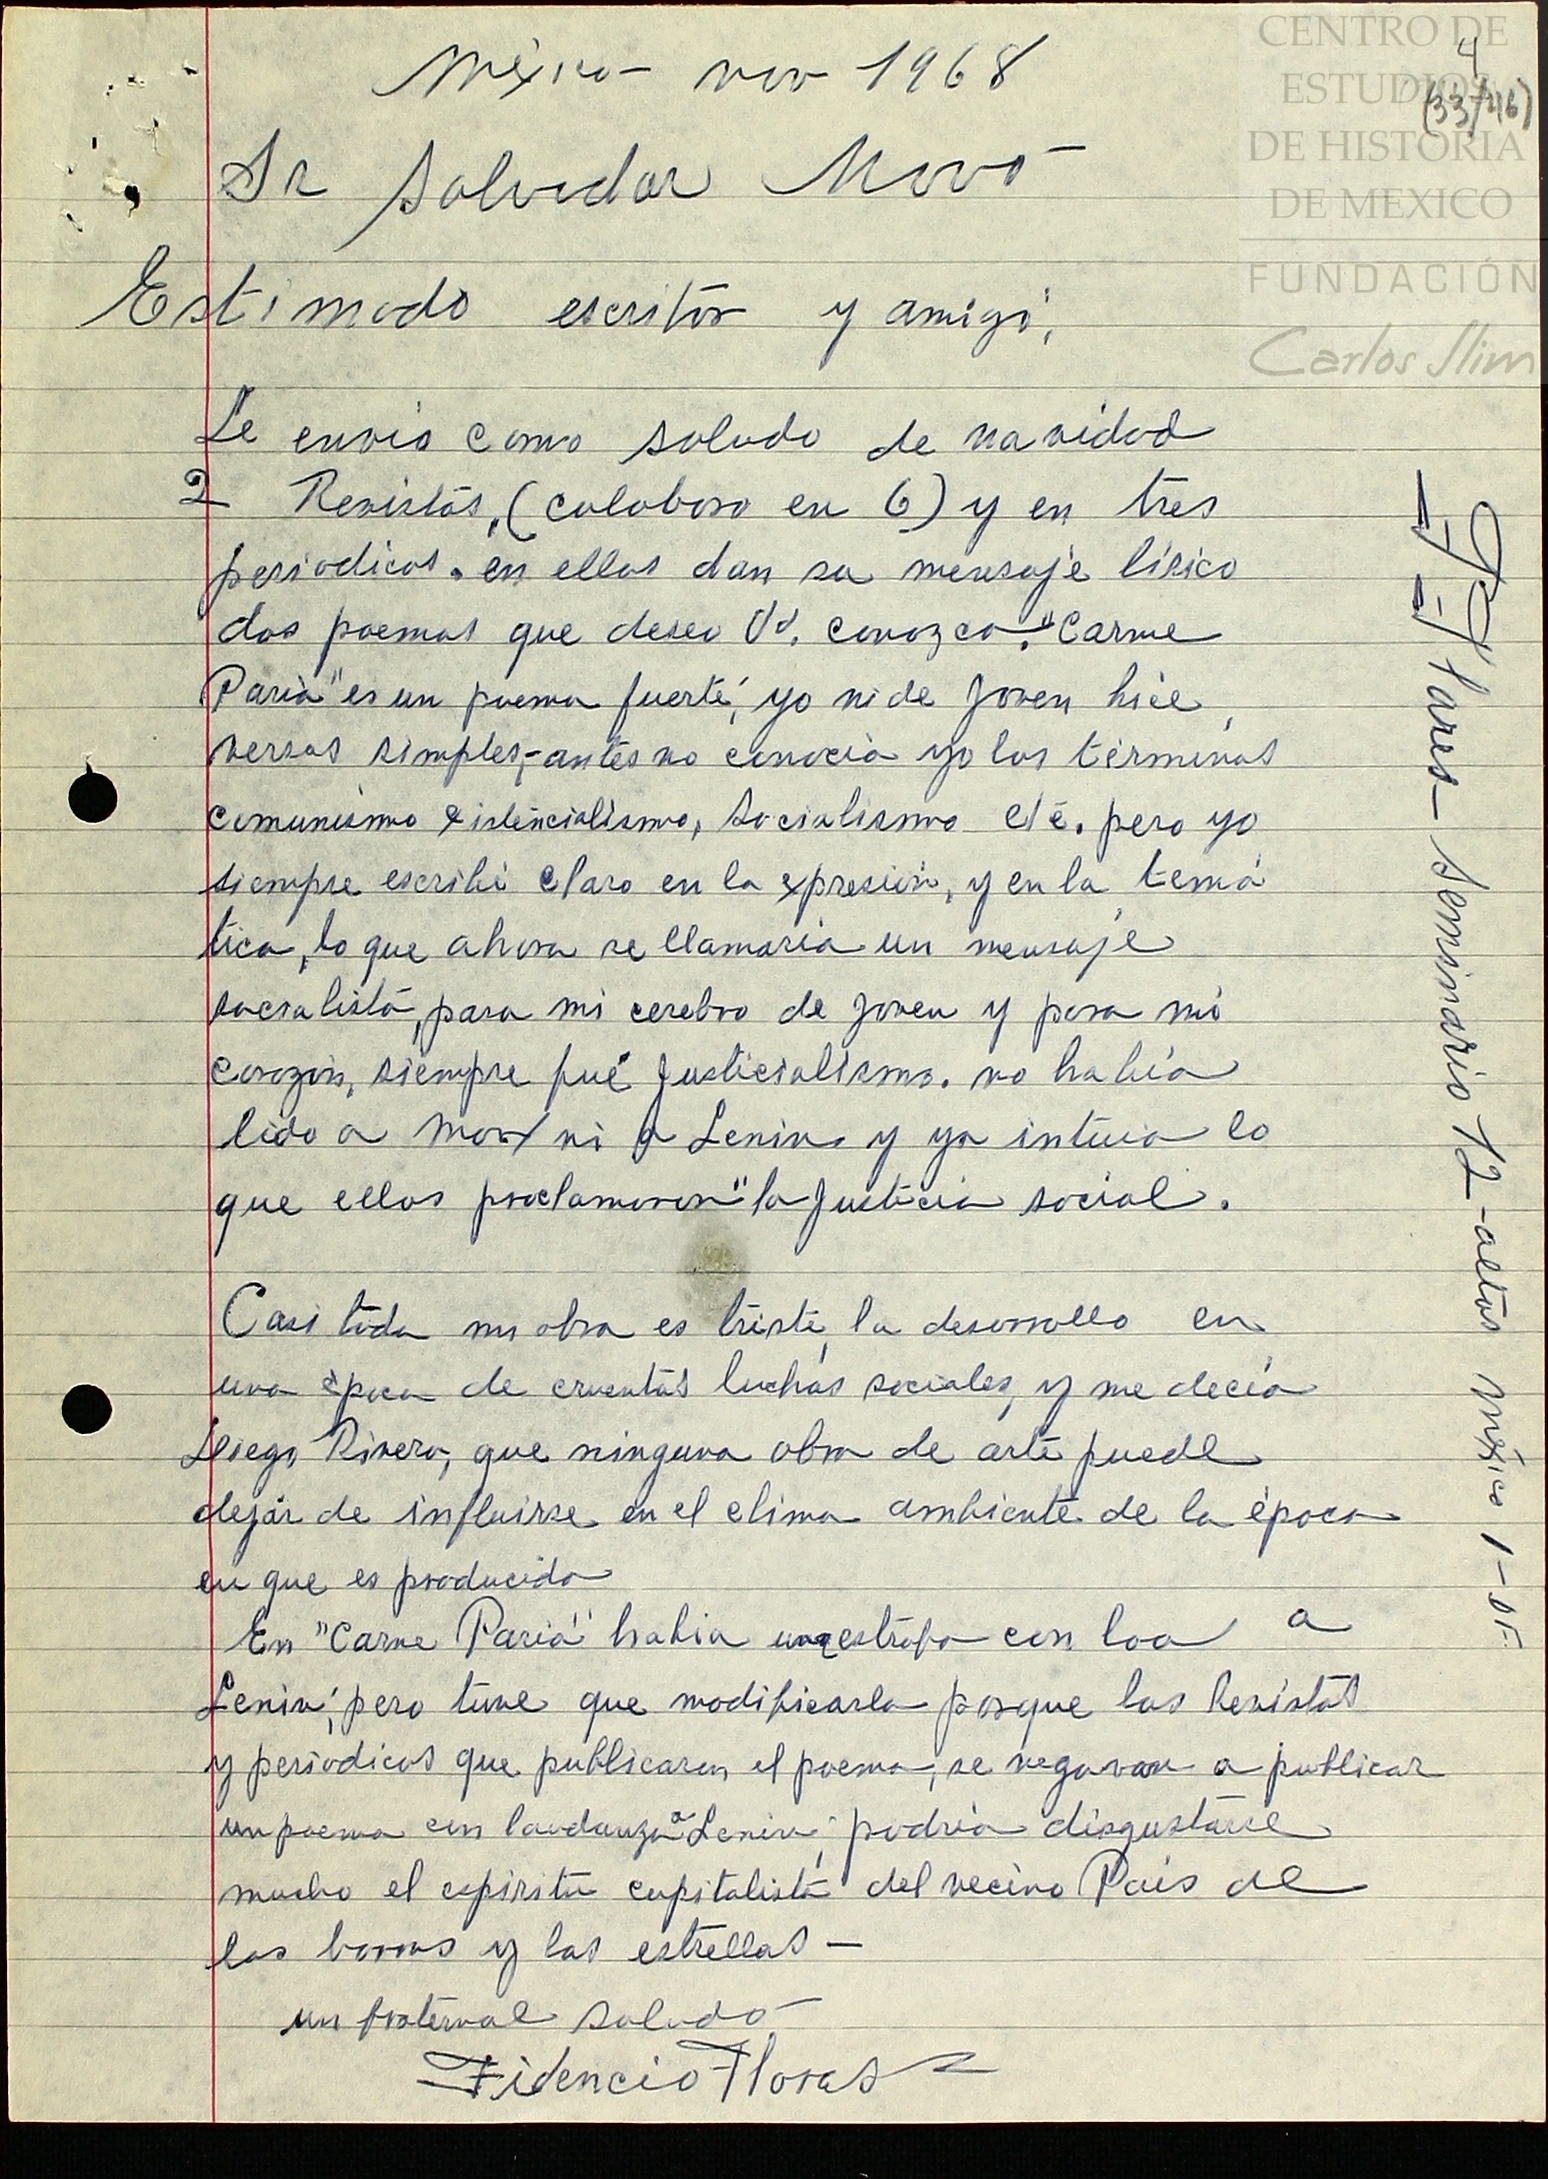 México - nov 1968
4
(33/46)
CENTRO DE
ESTUDIOS
DE HISTORIA
DE MEXICO
FUNDACIÓN
Carlos Slim
Sr Salvador Novo
Estimado escritor y amigo,
Le envio como saludo de navidad
2 Revistas, (colaboro en 6) y en tres
periodicos. en ellas dan su mensaje lírico
dos poemas que deseo Ud. conozca. "Carne
Paria" es un poema fuerte, yo ni de joven hice,
versos simples,- antes no conocia yo los términos
comunismo existencialismo, socialismo etc. pero yo
siempre escribí claro en la expresión, y en la temá
tica, lo que ahora se llamaria un mensaje
socialista, para mi cerebro de joven y para mi
corazón, siempre fué justicialismo. no habia
lido a Marx ni a Lenin y ya intuia lo
que ellos proclamaron "la justicia social.
Casi toda mi obra es triste, la desarrollo en
una época de cruentas luchas sociales, y me decia
Diego Rivera, que ninguna obra de arte puede
dejar de influirse en el clima ambiente de la época
en que es producida
En "Carne Paria" habia una estrofa con loa a
Lenin, pero tuve que modificarla porque las Revistas
y periodicos que publicaron el poema, se negavan a publicar
un poema con laudanza a Lenin, podria disgustarse
mucho el espiritu capitalista del vecino Pais de
las barras y las estrellas -
un fraternal saludo
Fidencio Flores
F Flores - Seminario 12 - altos México 1 - DF.